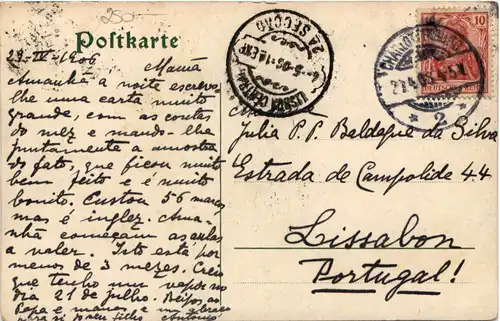 250-
Postkarte
29-IV-1906
Mamã
Amanhã a noite escrevo-
lhe uma carta muito
grande, com as contas
do mez e mando-lhe
juntamente a amostra
do fato, que ficou muito
bem feito e é muito
bonito. Custou 56 marcos
mas é inglez. Ama-
nhã começam as aulas
a valer. Isto está por
menos de 3 mezes. Creio
que tenho um vapor no
dia 21 de Julho. Beijos ao
Papa e manos e um abraço
para si do seu filho Antonio
LISBOA CENTRAL
2A SECÇÃO
10
DEUTSCHES REICH
* 2 *
Julia P. P. Baldaque da Silva
Estrada de Campolide 44
Lissabon
Portugal!